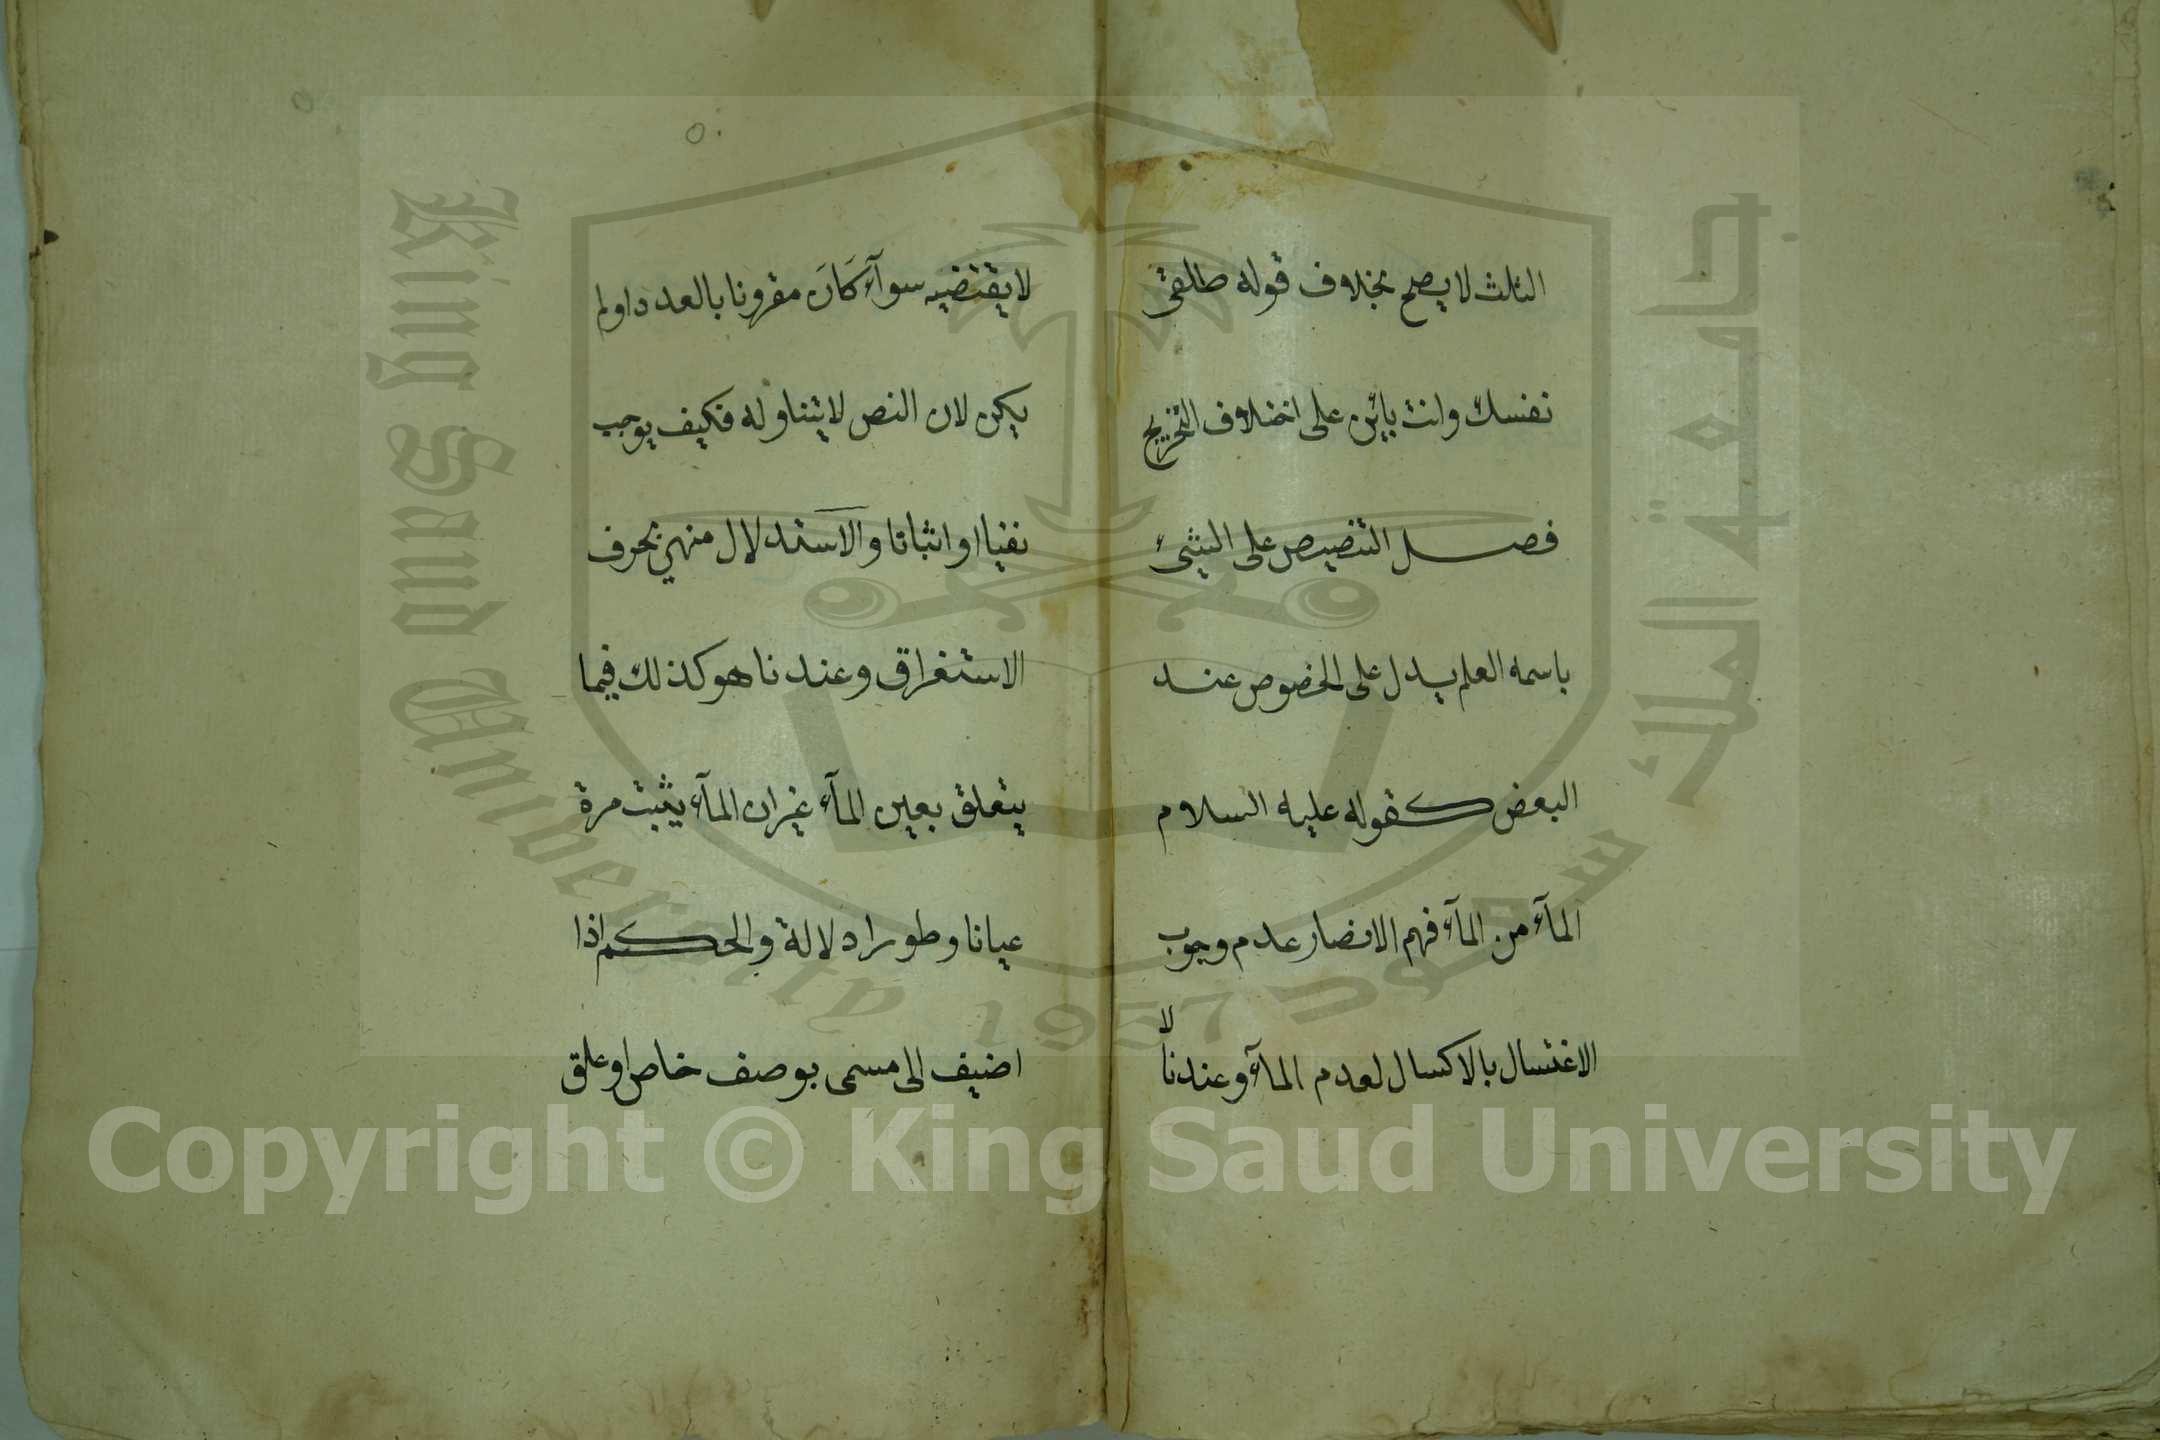 الثلث لا يصح بخلاف قوله طلقى
نفسك وانت باين على اختلاف التخريج
فصل التنصيص على الشىء
باسمه العلم يدل على الخصوص عند
البعض كقوله عليه السلام
المآء من المآء فهم الانصار عدم وجوب
الاغتسال بالاكسال لعدم المآء وعندنا
لا
لا يقتضيه سوآء كَانَ مقرونا بالعدد او لم
يكن لان النص لا يتناوله فكيف يوجب
نفيا او اثباتا والاستدلال منهم بحرف
الاستغراق وعندنا هو كذلك فيما
يتعلق بعين المآء غير ان المآء يثبت مرة
عيانا وطورا دلالة والحكم اذا
اضيف الى مسمى بوصف خاص او علق
King Saud University
1957
جامعة الملك سعود
Copyright © King Saud University